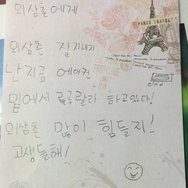 외삼촌에게
PARIS TRAVEL
외삼촌 잘지내기
난지금 에어컨
밑에서 룰루랄라 하고있다!
외삼촌 많이 힘들지!
고생들해!